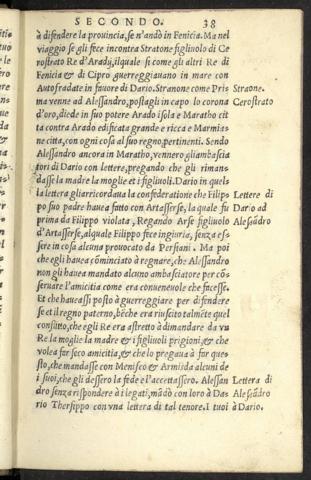 SECONDO. 38
à difendere la prouincia, se n'andò in Fenicia. Ma nel
viaggio se gli fece incontra Stratone figliuolo di Ce
rostrato Re d'Arady, il quale si come gli altri Re di
Fenicia & di Cipro guerreggiauano in mare con
Autofradate in fauore di Dario. Stranone come Pri
ma venne ad Alessandro, postagli in capo lo corona
d'oro, diede in suo potere Arado isola e Maratho cit
ta contra Arado edificata grande e ricca e Marmia
ne citta, con ogni cosa al suo regno, pertinenti. Sendo
Alessandro ancora in Maratho, vennero gli ambascia
tori di Dario con lettere, pregando che gli riman-
dasse la madre la moglie et i figliuoli. Dario in quel
la lettera gli arricordaua la confederatione che Filip
po suo padre hauea fatto con Artasserse, la quale fu
prima da Filippo violata, Regando Arse figliuolo
d'Artasserse, al quale Filippo fece ingiuria, senza es
sere in cosa alcuna prouocato da Persiani. Ma poi
che egli hauea cominciato à regnare, che Alessandro
non gli hauea mandato alcuno ambasciatore per cõ-
seruare l'amicitia come era conueneuole che facesse.
Et che haueassi posto à guerreggiare per difendere
se et il regno paterno, bēche era riuscito talmēte quel
conflitto, che egli Re era astretto à dimandare da vn
Re la moglie la madre & i figliuoli prigioni & che
volea far seco amicitia, & che lo pregaua à far que
sto, che mandasse con Menisco & Armida alcuni de
i suoi, che gli dessero la fede e l'accettassero. Alessan
dro senza rispondere à i legati, mādò con loro à Da
rio Thersippo con vna lettera di tal tenore. I tuoi
Straone.
Cerostrato
Lettere di
Dario ad
Alesādro
Lettera di
Alesādro
à Dario.